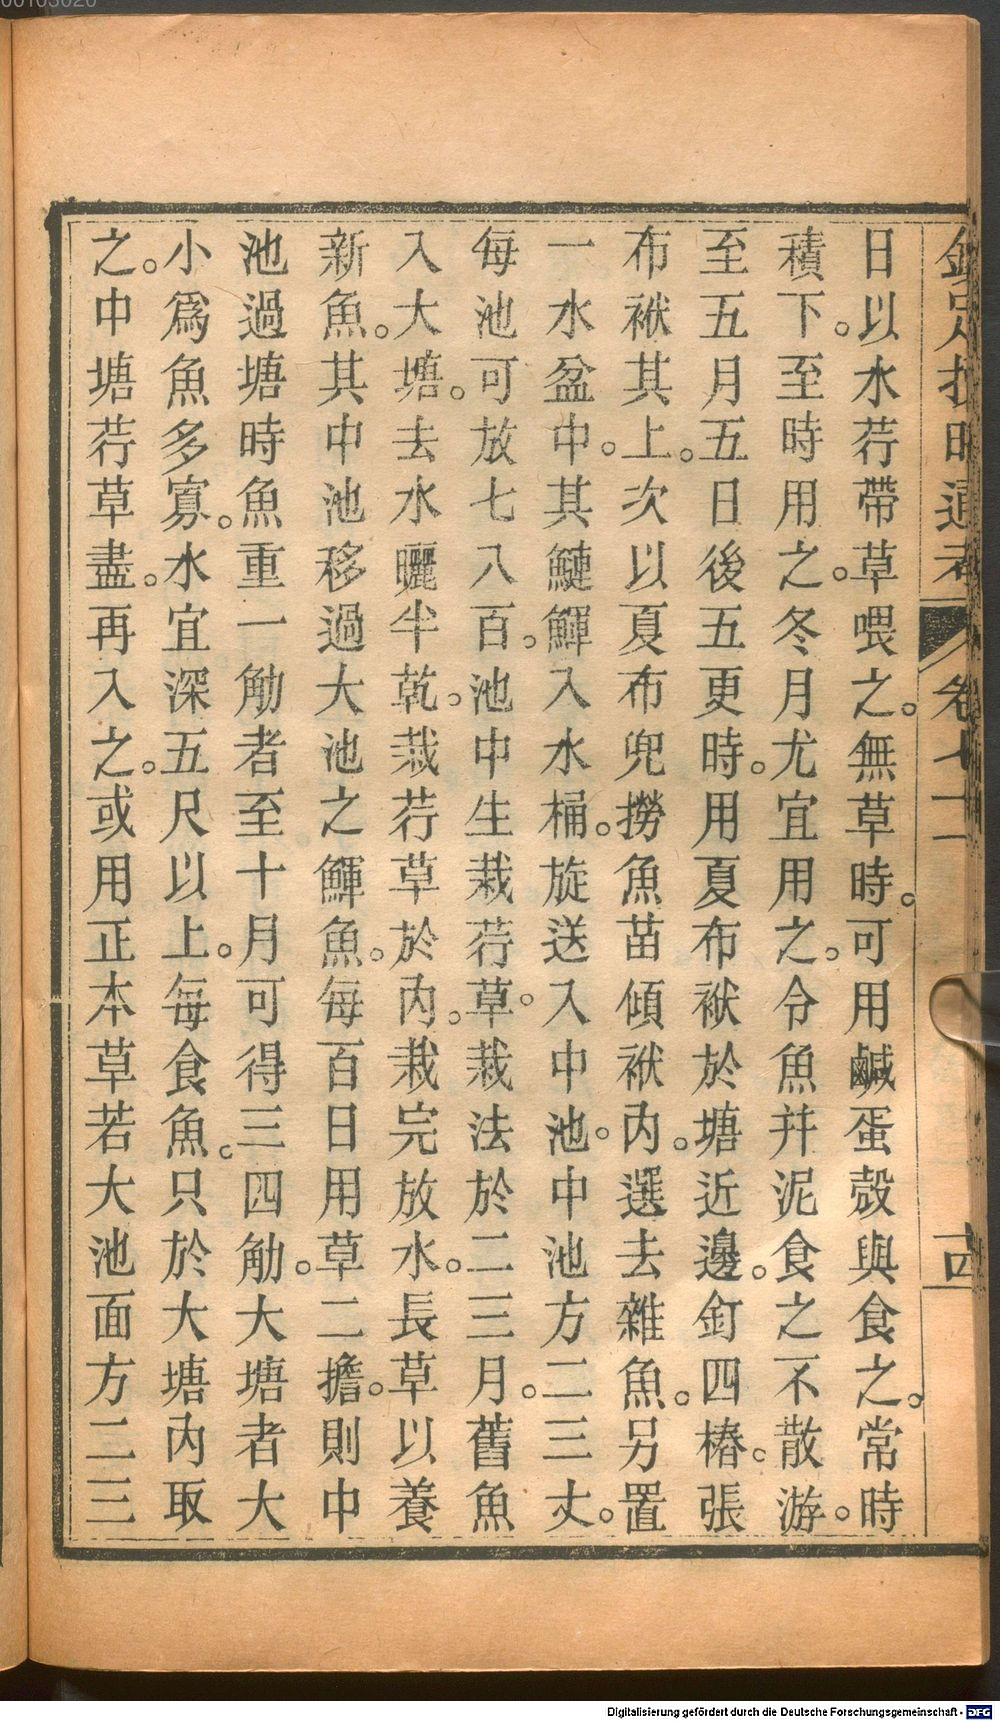 欽定授時通考 卷七十二 十四
日以水荇帶草喂之。無草時。可用鹹蛋殼與食之。常時
積下。至時用之。冬月尤宜用之。令魚并泥食之不散游。
至五月五日後五更時。用夏布袱於塘近邊。釘四樁。張
布袱其上。次以夏布兜撈魚苗傾袱內。選去雜魚。另置
一水盆中。其鰱鯶入水桶。旋送入中池。中池方二三丈。
每池可放七八百。池中生栽荇草。栽法於二三月。舊魚
入大塘。去水曬半乾。栽荇草於內。栽完放水。長草以養
新魚。其中池移過大池之鯶魚。每百日用草二擔。則中
池過塘時魚重一觔者至十月可得三四觔。大塘者大
小爲魚多寡。水宜深五尺以上。每食魚。只於大塘內取
之。中塘荇草盡。再入之。或用正本草若大池面方二三
00103020
Digitalisierung gefördert durch die Deutsche Forschungsgemeinschaft - DFG